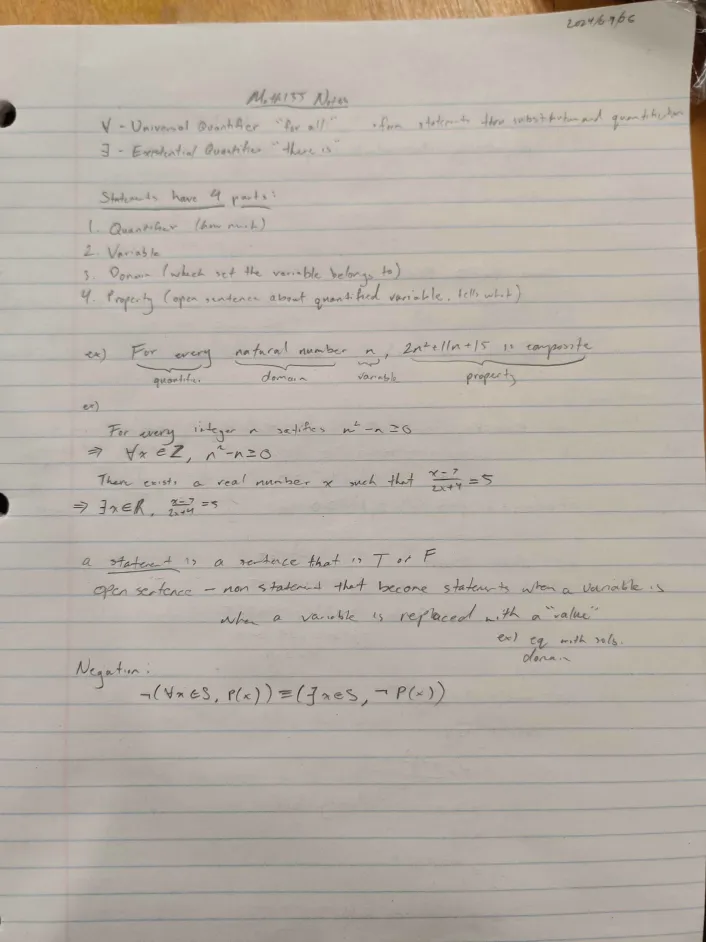 2024/09/06
Math135 Notes
∀ - Universal Quantifier "for all" • form statements thru substitution and quantification
∃ - Existential Quantifier "there is"
Statements have 4 parts:
1. Quantifier (how much)
2. Variable
3. Domain (which set the variable belongs to)
4. Property (open sentence about quantified variable, tells what)
ex) For every natural number n, 2n²+11n+15 is composite
quantifier domain variable property
ex)
For every integer n satifies n²-n≥0
⇒ ∀x∈Z, n²-n≥0
There exists a real number x such that (x-7)/(2x+4) = 5
⇒ ∃x∈R, (x-7)/(2x+4) = 5
a statement is a sentence that is T or F
open sentence - non statement that become statements when a variable is
when a variable is replaced with a "value"
ex) eq with
domain
Negation:
¬(∀x∈S, P(x)) ≡ (∃x∈S, ¬P(x))